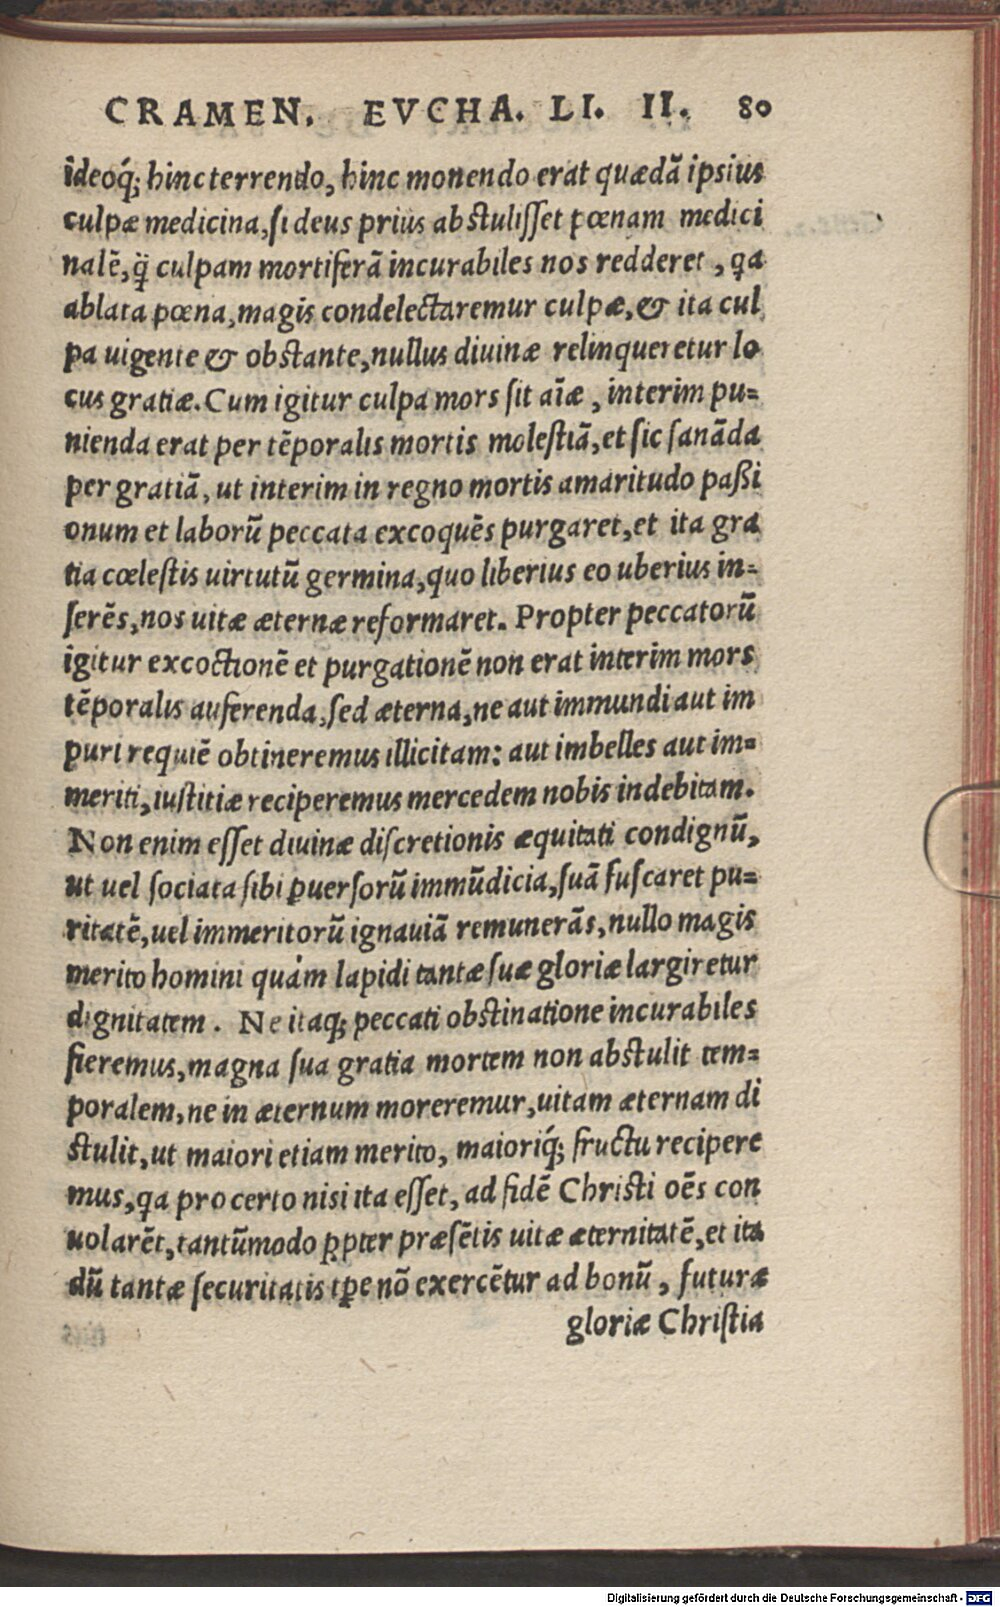 CRAMEN. EVCHA. LI. II. 80
ideoq́; hinc terrendo, hinc monendo erat quædā ipsius
culpæ medicina, si deus prius abstulisset pœnam medici
nalē, q̈ culpam mortiferā incurabiles nos redderet, qa
ablata pœna, magis condelectaremur culpæ, & ita cul
pa uigente & obstante, nullus diuinæ relinqueretur lo
cus gratiæ. Cum igitur culpa mors sit aīæ, interim pu=
nienda erat per tēporalis mortis molestiā, et sic sanāda
per gratiā, ut interim in regno mortis amaritudo paßi
onum et laborū peccata excoquēs purgaret, et ita gra
tia cœlestis uirtutū germina, quo liberius eo uberius in=
serēs, nos uitæ æternæ reformaret. Propter peccatorū
igitur excoctionē et purgationē non erat interim mors
tēporalis auferenda, sed æterna, ne aut immundi aut im
puri requiē obtineremus illicitam: aut imbelles aut im=
meriti, iustitiæ reciperemus mercedem nobis indebitam.
Non enim esset diuinæ discretionis æquitati condignū,
ut uel sociata sibi ꝑuersorū immūdicia, suā fuscaret pu=
ritatē, uel immeritorū ignauiā remunerās, nullo magis
merito homini quàm lapidi tantæ suæ gloriæ largiretur
dignitatem. Ne itaq; peccati obstinatione incurabiles
fieremus, magna sua gratia mortem non abstulit tem=
poralem, ne in æternum moreremur, uitam æternam di
stulit, ut maiori etiam merito, maioriq́; fructu recipere
mus, qa pro certo nisi ita esset, ad fidē Christi oēs con
uolarēt, tantūmodo ꝓpter præsētis uitæ æternitatē, et ita
dū tantæ securitatis tꝑe nō exercētur ad bonū, futuræ
gloriæ Christia
Digitalisierung gefördert durch die Deutsche Forschungsgemeinschaft - DFG